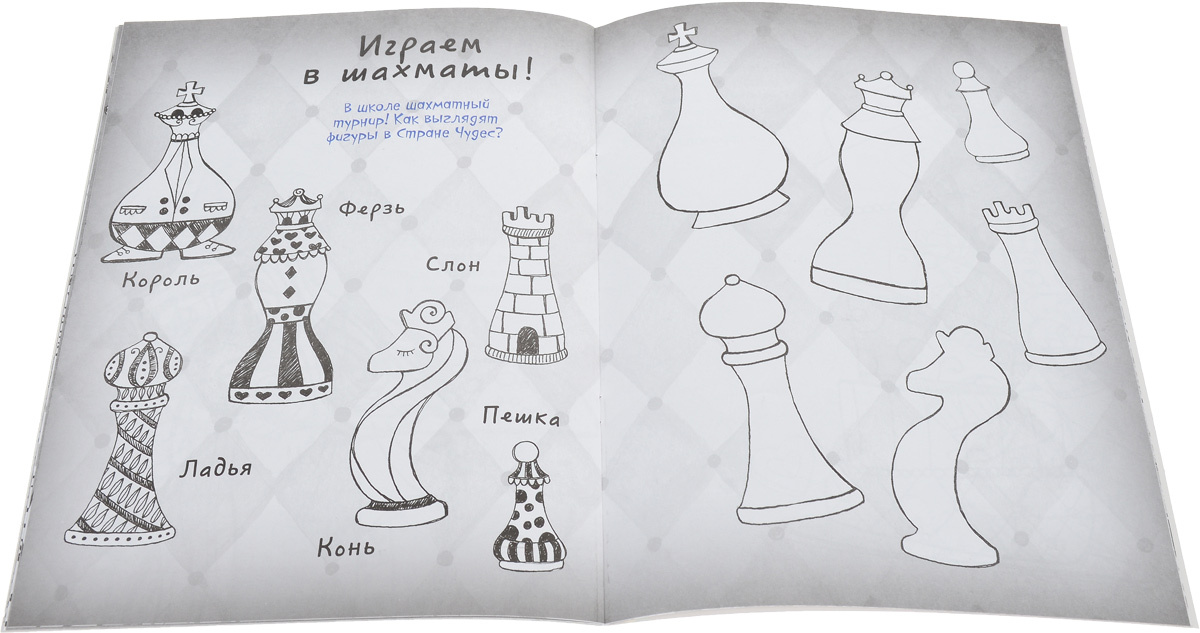 Играем
в шахматы!
В школе шахматный
турнир! Как выглядят
фигуры в Стране Чудес?
Король
Ферзь
Слон
Ладья
Пешка
Конь